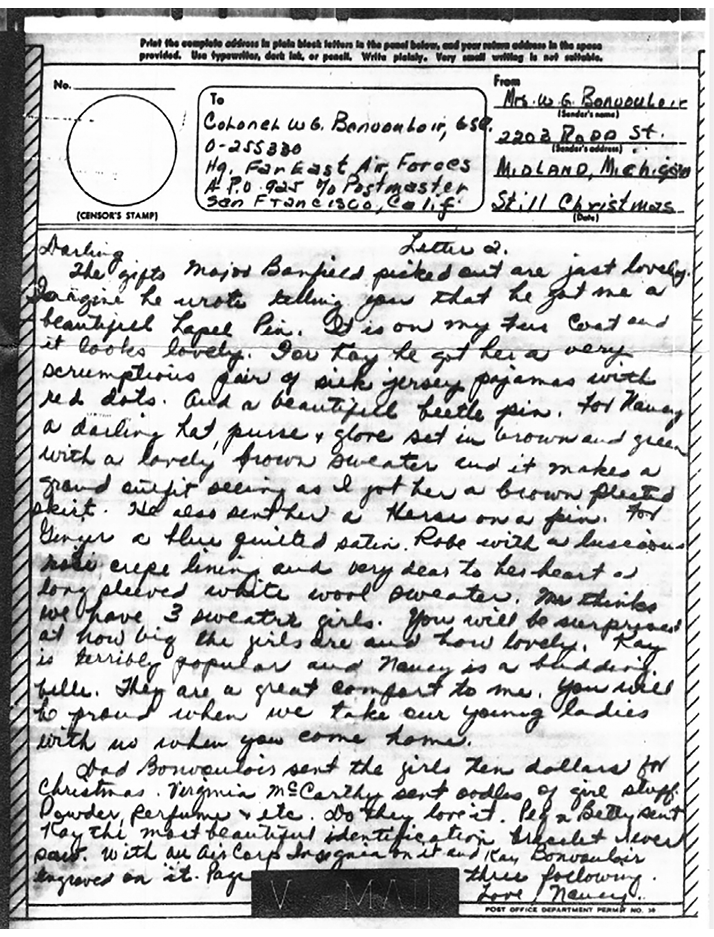 Print the complete address in plain block letters in the panel below, and your return address in the space
provided. Use typewriter, dark ink, or pencil. Write plainly. Very small writing is not suitable.
No.
(CENSOR'S STAMP)
To
Colonel W.G. Bonvouloir, GSC.
O-255330
Hq. Far East Air Forces
A.P.O 925 c/o Postmaster
San Francisco, Calif.
From
Mrs. W G Bonvouloir
(Sender's name)
2203 Rodd St.
(Sender's address)
Midland, Michigan
Still Christmas
(Date)
Letter 2.
Darling
The gifts Major Banfield picked out are just lovely.
Imagine he wrote telling you that he got me a
beautiful Lapel Pin. It is on my fur coat and
it looks lovely. For Kay he got her a very
scrumptious pair of silk jersey pajamas with
red dots. And a beautiful beetle pin. For Nancy
a darling hat, purse + glove set in brown and green
with a lovely brown sweater and it makes a
grand outfit seeing as I got her a brown pleated
skirt. He also sent her a Horse on a pin. For
Ginger a blue quilted satin Robe with a luscious
rose crepe lining and very dear to her heart a
long sleeved white wool sweater. Me thinks
we have 3 sweater girls. You will be surprised
at how big the girls are and how lovely. Kay
is terribly popular and Nancy is a budding
belle. They are a great comfort to me. You will
be proud when we take our young ladies
with us when you come home.
Dad Bonvouloir sent the girls ten dollars for
Christmas. Virginia McCarthy sent oodles of girl stuff.
Powder, perfume + etc. Do they love it. Peg n Betty sent
Kay the most beautiful identification bracelet I ever
saw. With an Air Corp Insignia on it and Kay Bonvouloir
engraved on it. Page three following.
Love, Nancy.
V - MAIL
POST OFFICE DEPARTMENT PERMIT NO. 30